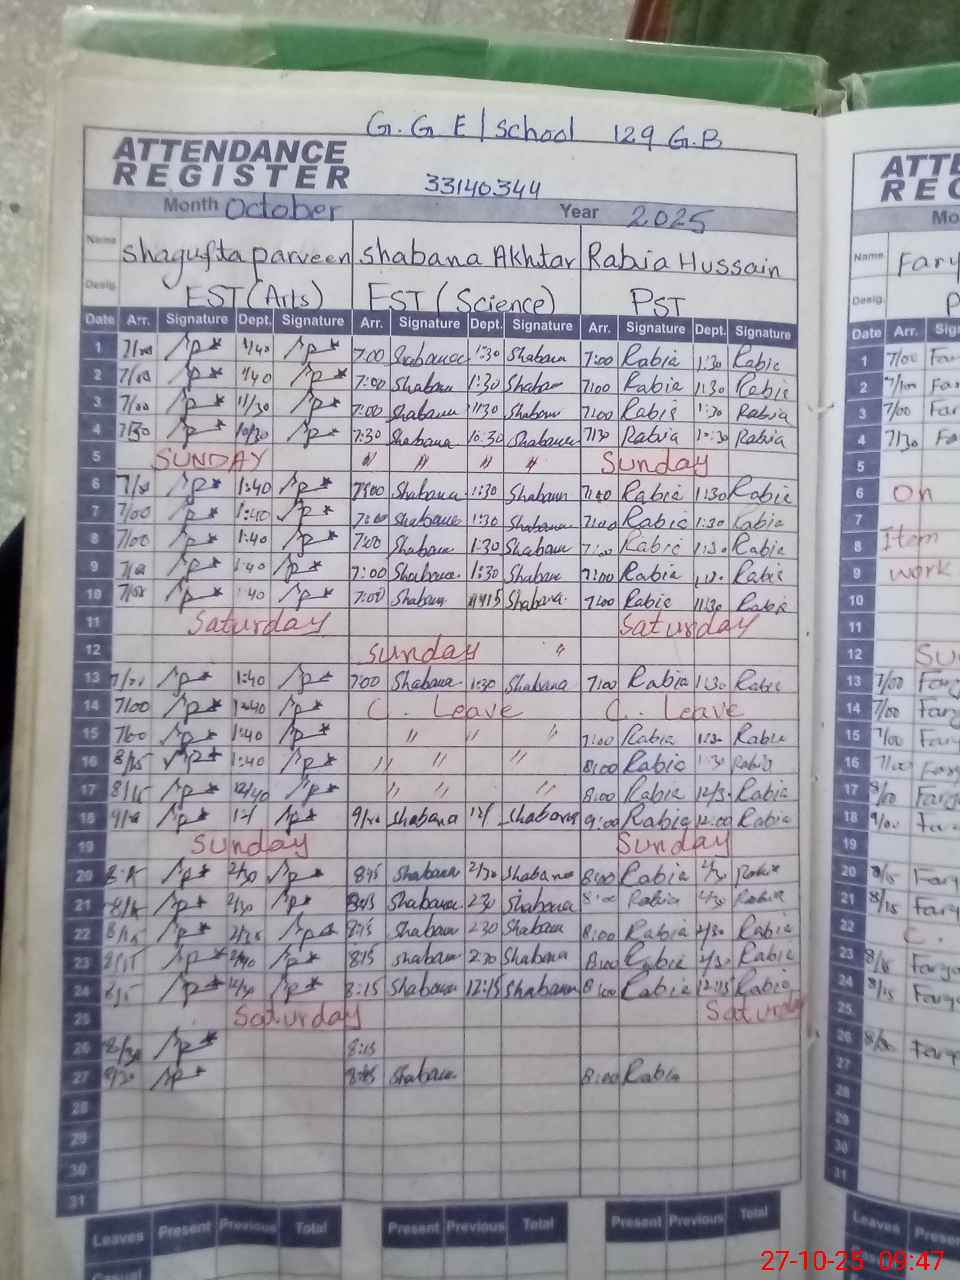 G.G E/School 129 G.B
ATTENDANCE
REGISTER
33140344
Month October Year 2025
Name Shagufta Parveen Shabana Akhtar Rabia Hussain
Desig. EST (Arts) EST (Science) PST
Date Arr. Signature Dept. Signature Arr. Signature Dept. Signature Arr. Signature Dept. Signature
1 7/00 1/40 7:00 Shabana 1:30 Shabana 7:00 Rabia 1:30 Rabia
2 7/00 1/40 7:00 Shabana 1:30 Shabana 7:00 Rabia 1:30 Rabia
3 7/00 11/30 7:00 Shabana 11:30 Shabana 7:00 Rabia Rabia
4 7/30 10/30 7:30 Shabana 10:30 Shabana 7/30 Rabia 10:30 Rabia
5 SUNDAY " " " " Sunday
6 1:40 7:00 Shabana 1:30 Shabana Rabia 1:30 Rabia
7 7/00 1:40 7:00 Shabana 1:30 Shabana 7:00 Rabia 1:30 Rabia
8 7/00 1:40 7:00 Shabana 1:30 Shabana Rabia 1:30 Rabia
9 1:40 7:00 Shabana 1:30 Shabana 7:00 Rabia Rabia
10 7/00 1:40 7:00 Shabana Shabana 7:00 Rabia 11:30 Rabia
11 Saturday Saturday
12 Sunday "
13 1:40 7:00 Shabana 1:30 Shabana 7:00 Rabia 1:30 Rabia
14 7/00 1:40 C. Leave C. Leave
15 7/00 1:40 " " " 7:00 Rabia 1:30 Rabia
16 8/15 1:40 " " " 8:00 Rabia 1:30 Rabia
17 8/15 12/40 " " " 8:00 Rabia 12/30 Rabia
18 9/00 12/ 9/00 Shabana 12/ Shabana 9:00 Rabia 12:00 Rabia
19 Sunday Sunday
20 8:15 2/30 845 Shabana 2/30 Shabana 8:00 Rabia 2/30 Rabia
21 8/15 2/30 Shabana 230 Shabana 8:00 Rabia 2/30 Rabia
22 8/15 815 Shabana 230 Shabana 8:00 Rabia 2/30 Rabia
23 8/15 815 Shabana 230 Shabana 8:00 Rabia 2/30 Rabia
24 8/15 12/30 8:15 Shabana 12:15 Shabana 8:00 Rabia 12:15 Rabia
25 Saturday Saturday
26 8/30 8:15
27 Shabana 8:00 Rabia
28
29
30
31
Leaves Present Previous Total Present Previous Total Present Previous Total
Casual
Name
Desig.
Date Arr.
1 7/00
2
3 7/00
4 7/30
5
6 On
7
8 Item
9 work
10
11
12
13 7/00
14 7/00
15 7/00
16
17
18 9/00
19
20 8/15
21 8/15
22 C.
23
24 8/15
25
26
27
28
29
30
31
Leaves
27-10-25 09:47